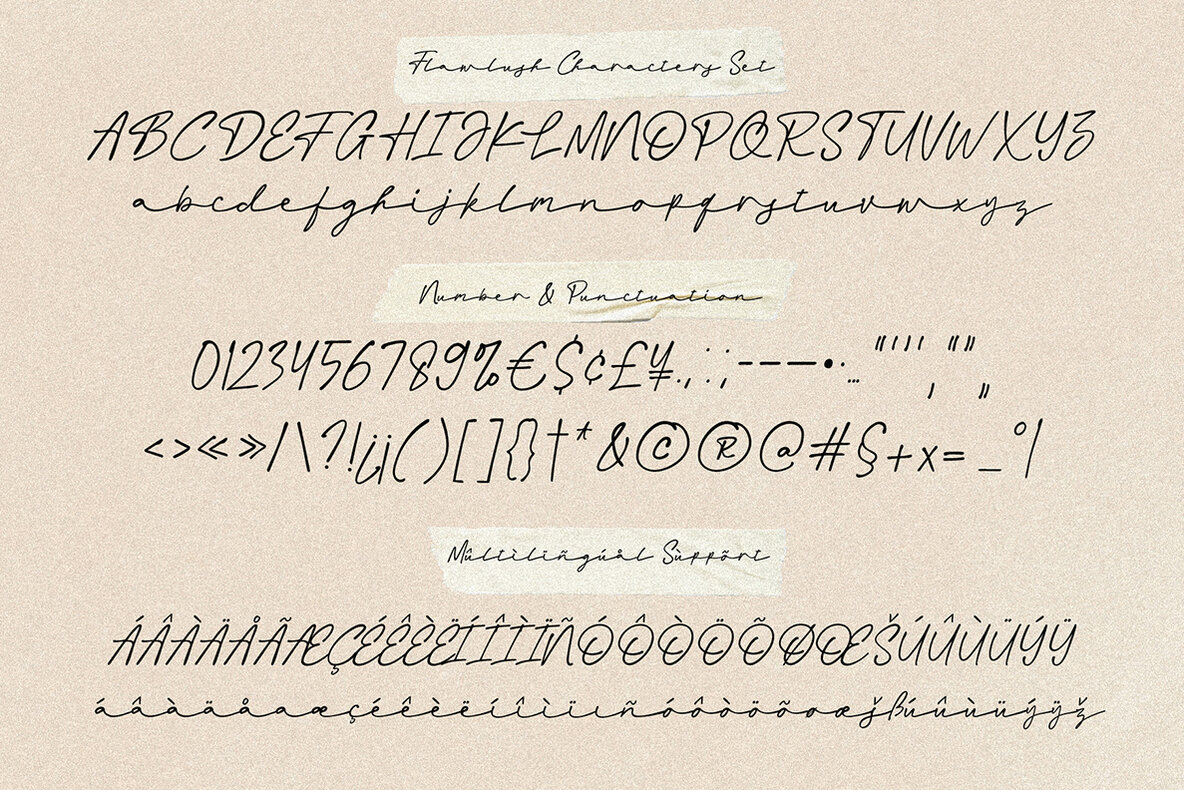 Flawlush Characters Set
ABCDEFGHIJKLMNOPQRSTUVWXYZ
abcdefghijklmnopqrstuvwxyz
Number & Punctuation
0123456789%€$¢£¥.,:;-–—•·…"'‘’‚“”„
<>«»/\?!¿¡()[]{}†*&©®@#§+×=_°|
Mûltìlìñgúål Sùppõrt
ÁÂÀÄÅÃÆÇÉÊÈËÍÎÌÏÑÓÔÒÖÕØŒŠÚÛÙÜÝŸ
áâàäåaæçéêèëíîìïıñóôòöõøœšßúûùüýÿž